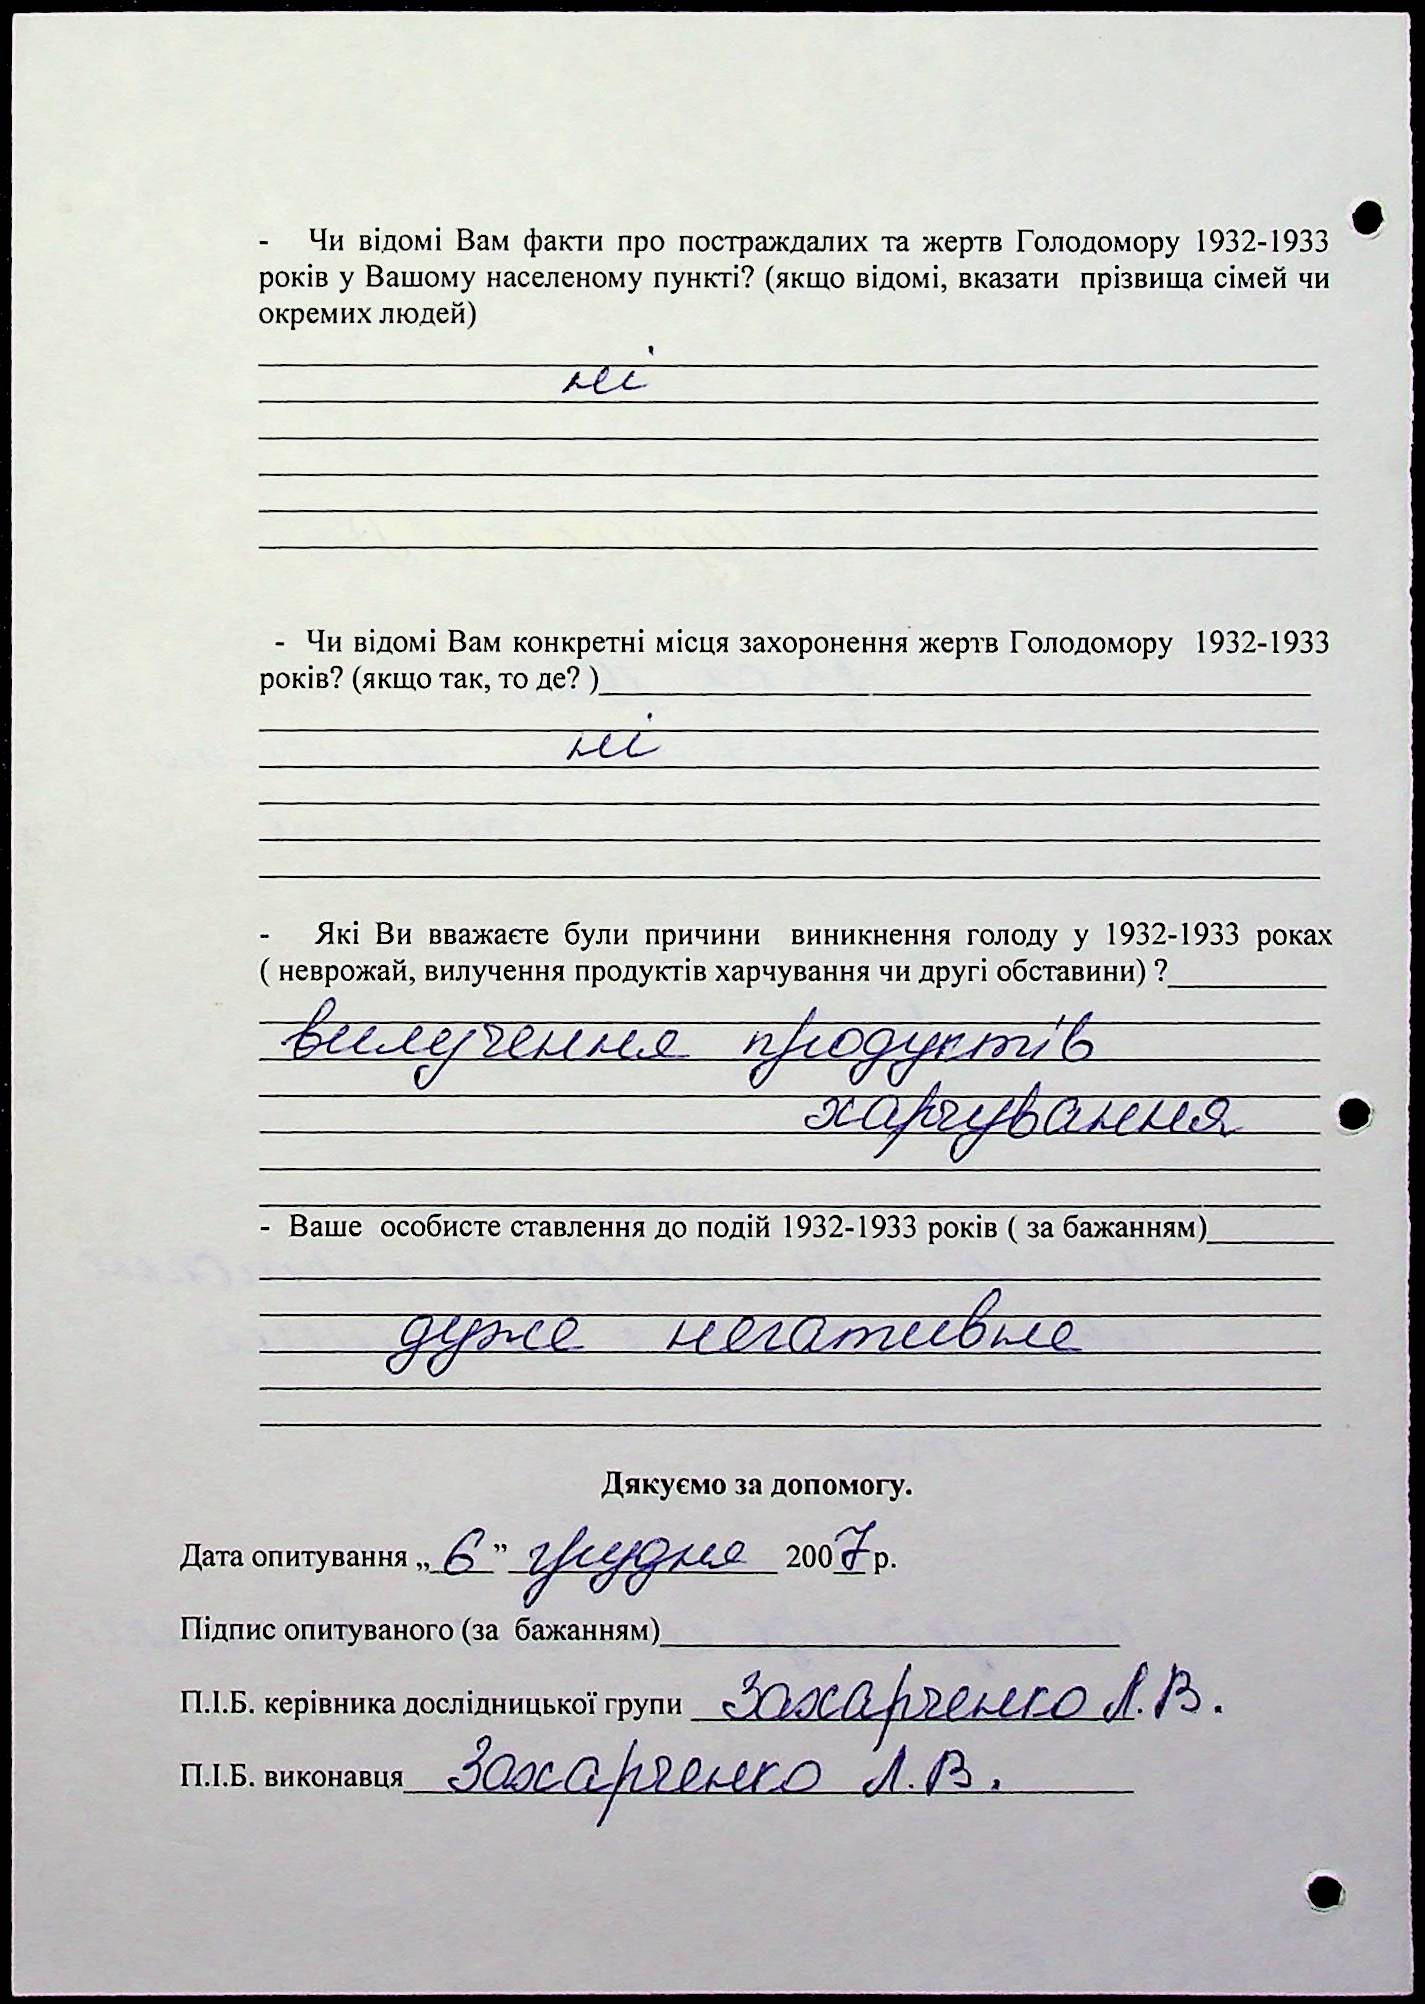 - Чи відомі Вам факти про постраждалих та жертв Голодомору 1932-1933
років у Вашому населеному пункті? (якщо відомі, вказати прізвища сімей чи
окремих людей)
ні
- Чи відомі Вам конкретні місця захоронення жертв Голодомору 1932-1933
років? (якщо так, то де? )
ні
- Які Ви вважаєте були причини виникнення голоду у 1932-1933 роках
( неврожай, вилучення продуктів харчування чи другі обставини) ?
вилучення продуктів
харчування
- Ваше особисте ставлення до подій 1932-1933 років ( за бажанням)
дуже негативне
Дякуємо за допомогу.
Дата опитування „ 6 ” грудня 2007 р.
Підпис опитуваного (за бажанням)
П.І.Б. керівника дослідницької групи Захарченко Л.В.
П.І.Б. виконавця Захарченко Л.В.